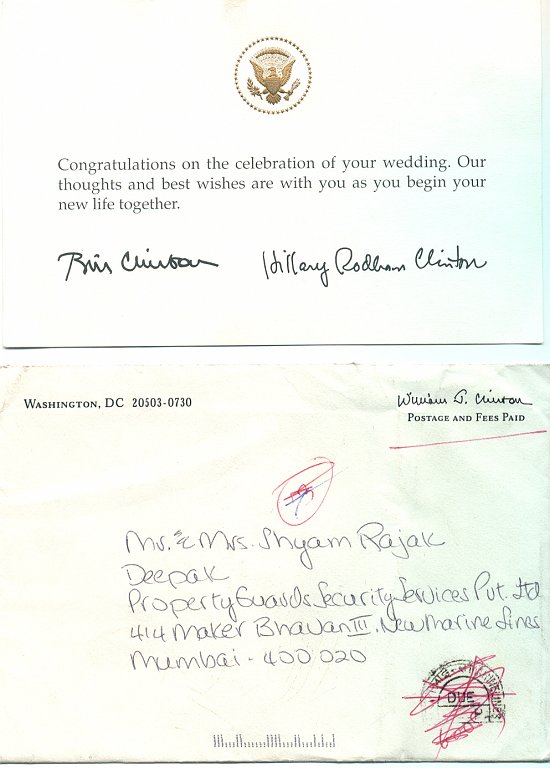 Congratulations on the celebration of your wedding. Our
thoughts and best wishes are with you as you begin your
new life together.
Bill Clinton Hillary Rodham Clinton
WASHINGTON, DC 20503-0730
William J. Clinton
POSTAGE AND FEES PAID
Mr. & Mrs. Shyam Rajak
Deepak
Property Guards Security Services Pvt. Ltd
414 Maker Bhavan III, New Marine Lines
Mumbai - 400 020
DUE